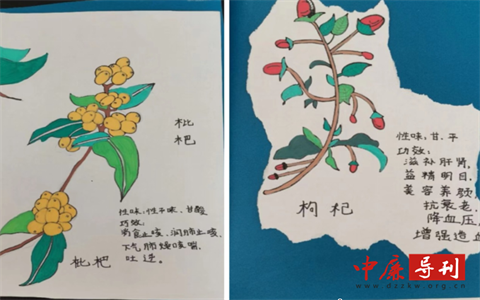 枇
杷
性味:性平味,甘酸
功效:
润肺止咳,
下气
吐逆.
枇杷
性味:甘、平
功效:
滋补肝肾,
益精明目,
美容养颜
抗衰老.
降血压,
增强造血
枸杞
中廉导刊
www.dzzkw.org.cn